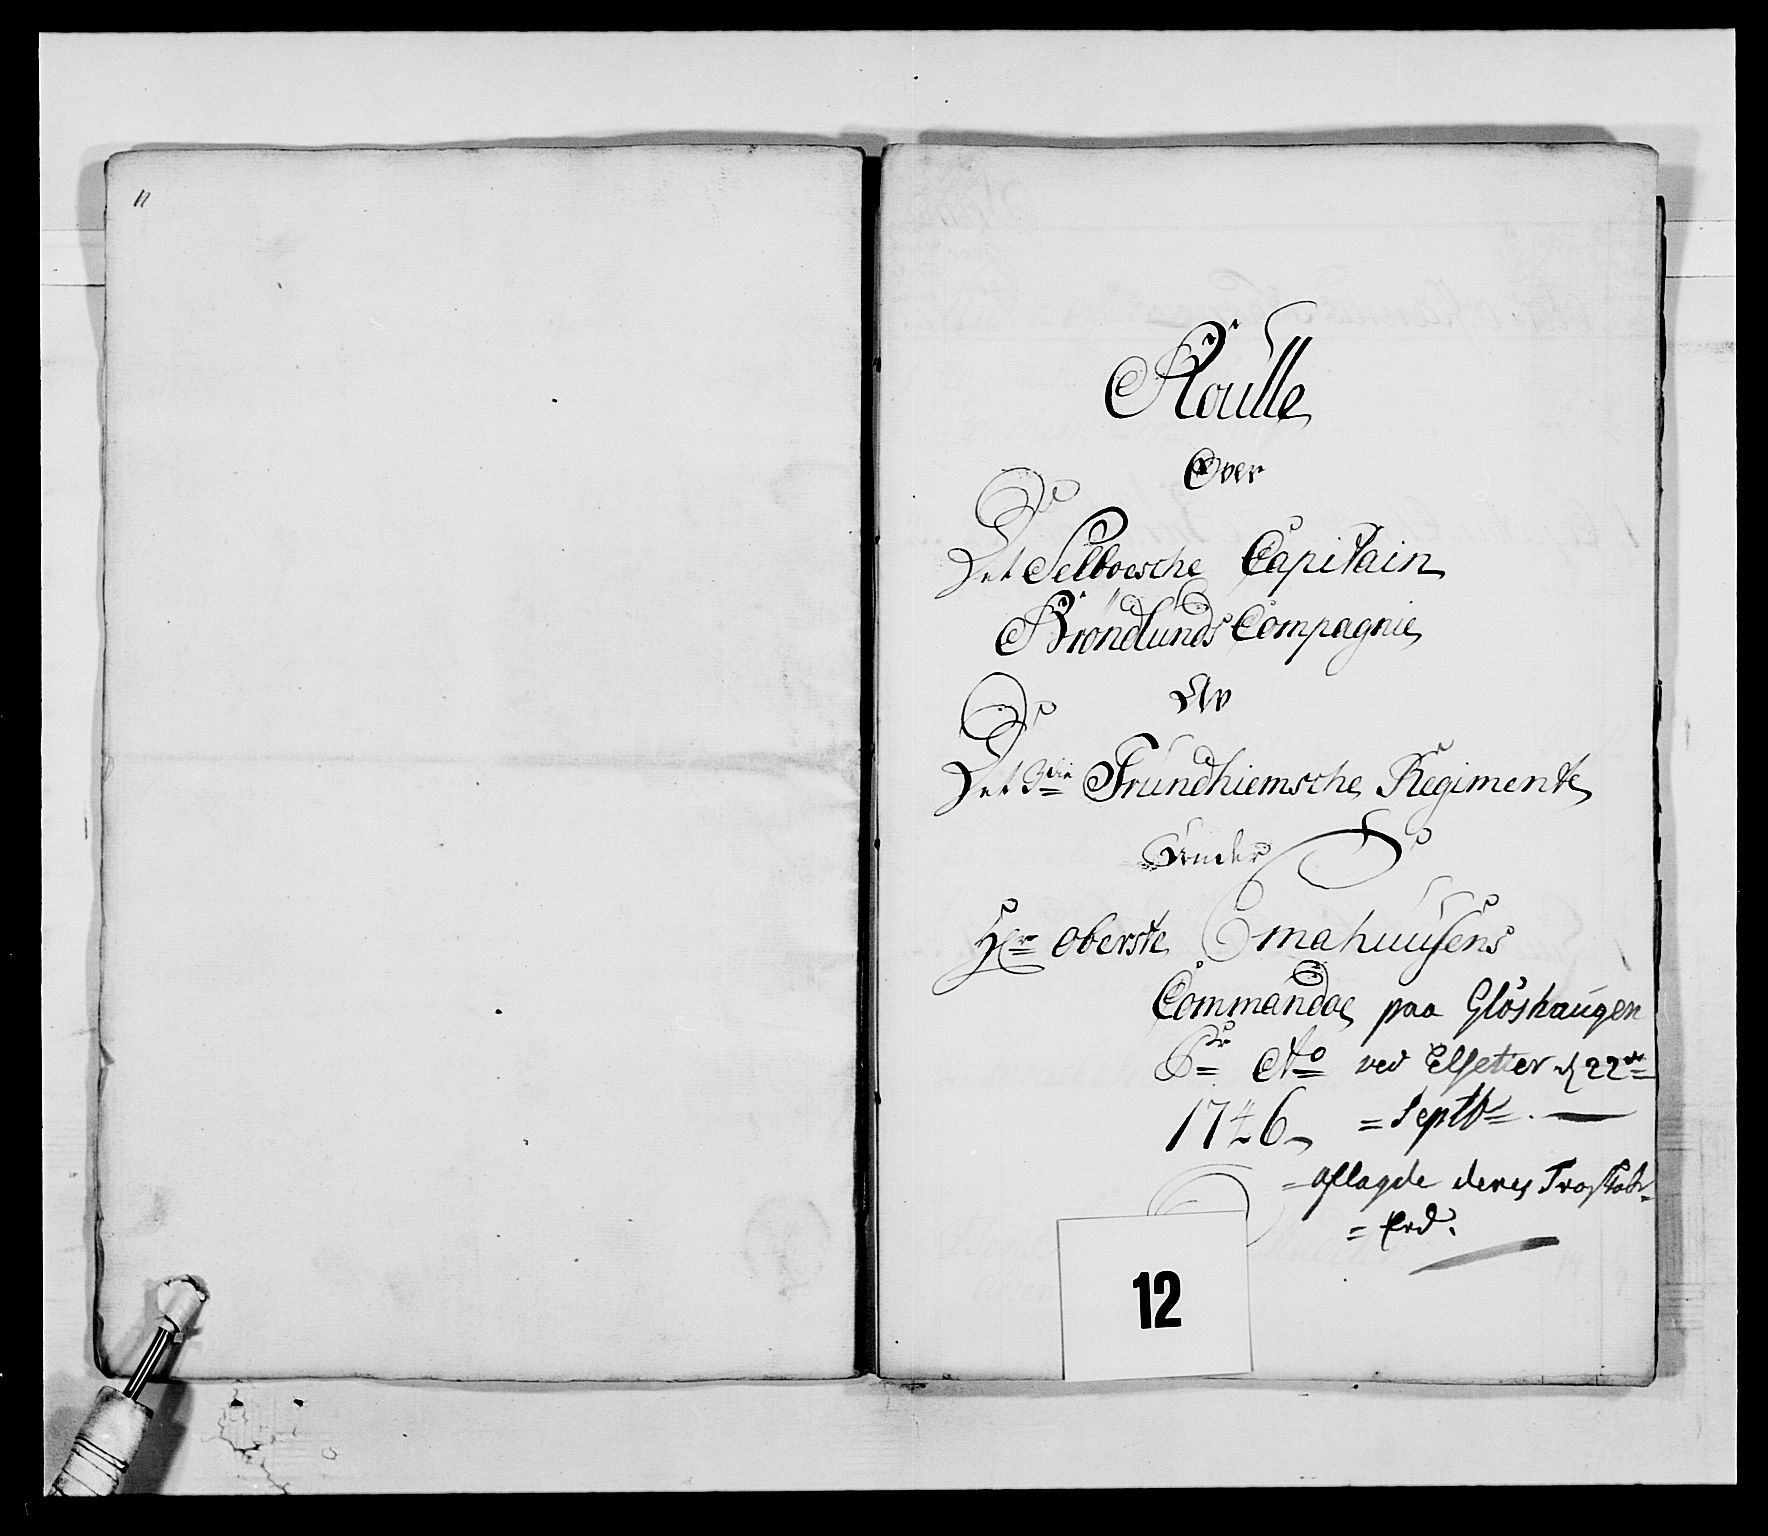 11
Roulle
Over
Det Selboesche Capitain
Bröndlunds Compagnie
Av
Det 3die Trundhiemsche Regimente
Under
Hr Oberste Emahuusens
Commandoe paa Glöshaugen
Pr Ao ved Elsetter d 22de
1746 = Septbr
= aflagde deres Troskab-
= Eed.
12